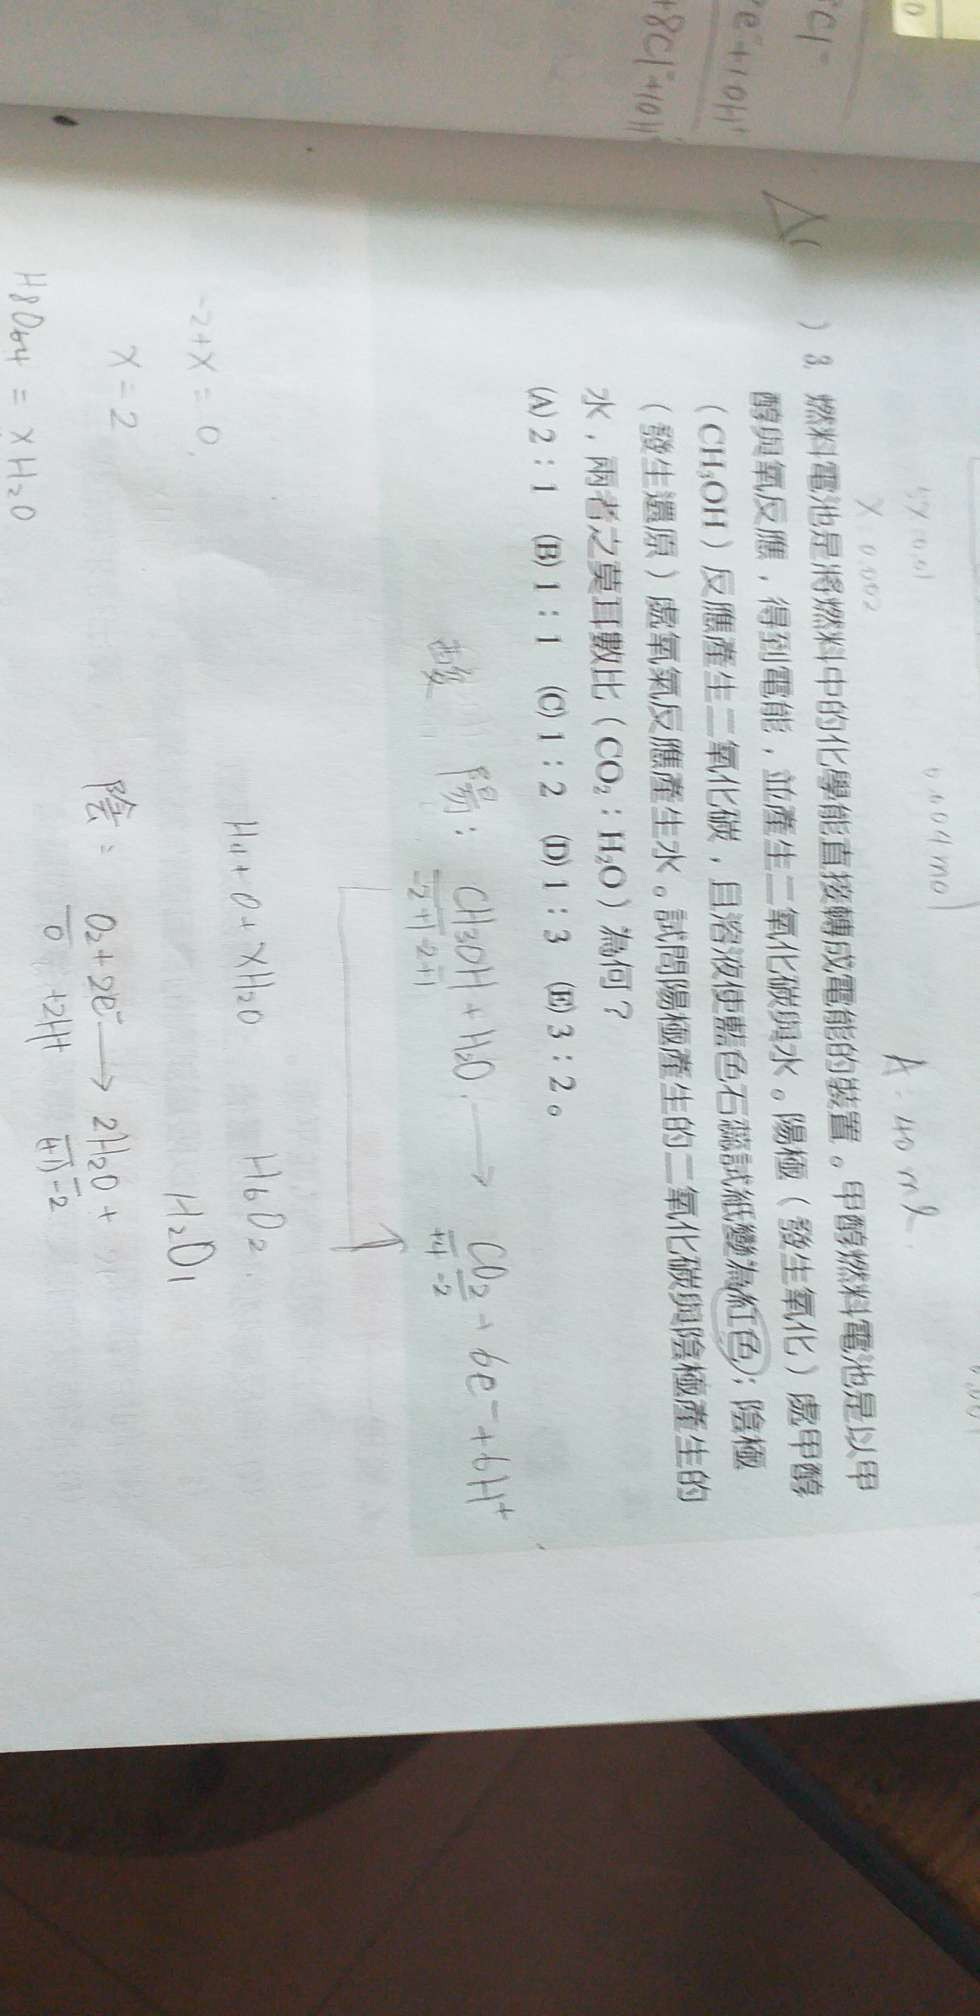 5Cl⁻
e⁻+10H⁺
+8Cl⁻+10H
0.004mol
5×0.01
X 0.002
A = 40 mL
( ) 8. 燃料電池是將燃料中的化學能直接轉成電能的裝置。甲醇燃料電池是以甲
醇與氧反應，得到電能，並產生二氧化碳與水。陽極（發生氧化）處甲醇
（CH₃OH）反應產生二氧化碳，且溶液使藍色石蕊試紙變為紅色；陰極
（發生還原）處氧氣反應產生水。試問陽極產生的二氧化碳與陰極產生的
水，兩者之莫耳數比（CO₂：H₂O）為何？
(A) 2：1 (B) 1：1 (C) 1：2 (D) 1：3 (E) 3：2。
酸
陽： CH₃OH + H₂O → CO₂ + 6e⁻ + 6H⁺
-2 +1 -2 +1 +4 -2
H₄ + O + XH₂O H₆O₂
-2+X = 0
H₂O₁
X = 2
陰： O₂ + 2e⁻ → 2H₂O +
0 +2H⁺ +1 -2
= X H₂O